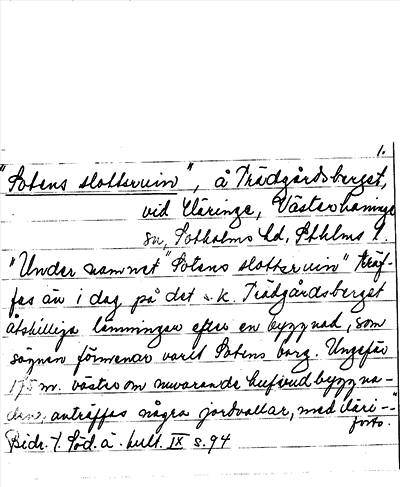 1.
"Sotens slottsruin", å Trädgårdsberget,
vid Häringe, Västerhaninge
sn, Sotholms hd, Sthlms l.
"Under namnet "Sotens slottsruin" träf-
fas än i dag på det s.k. Trädgårdsberget
åtskilliga lämningar efter en byggnad, som
sägnen förmenar varit Sotens borg. Ungefär
175 m. väster om nuvarande huvudbyggna-
den, anträffas några jordvallar, med däri--"
forts.
Bidr. t. Söd. ä. kult. IX s. 94